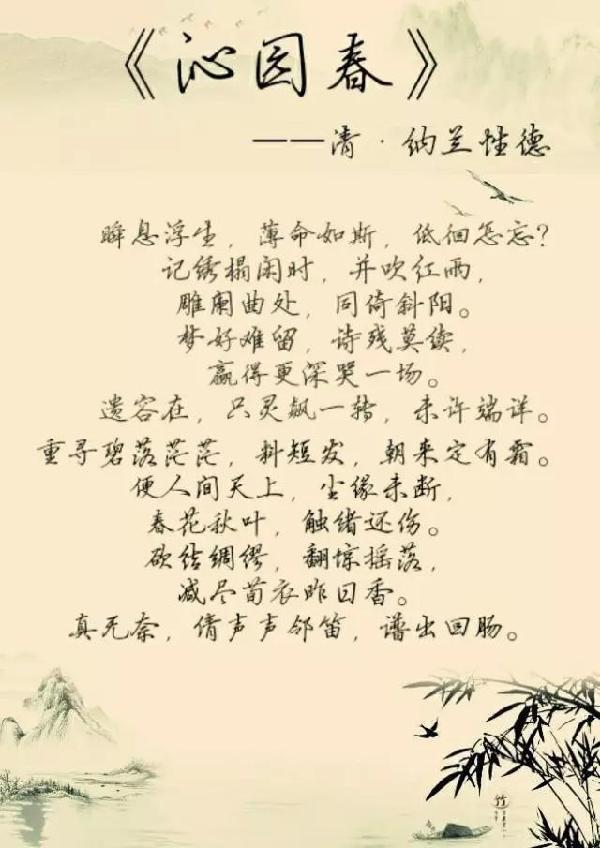 《沁园春》
——清·纳兰性德
瞬息浮生，薄命如斯，低徊怎忘？
记绣榻闲时，并吹红雨，
雕阑曲处，同倚斜阳。
梦好难留，诗残莫续，
赢得更深哭一场。
遗容在，只灵飙一转，未许端详。
重寻碧落茫茫，料短发，朝来定有霜。
便人间天上，尘缘未断，
春花秋叶，触绪还伤。
欲结绸缪，翻惊摇落，
减尽荀衣昨日香。
真无奈，倩声声邻笛，谱出回肠。
竹